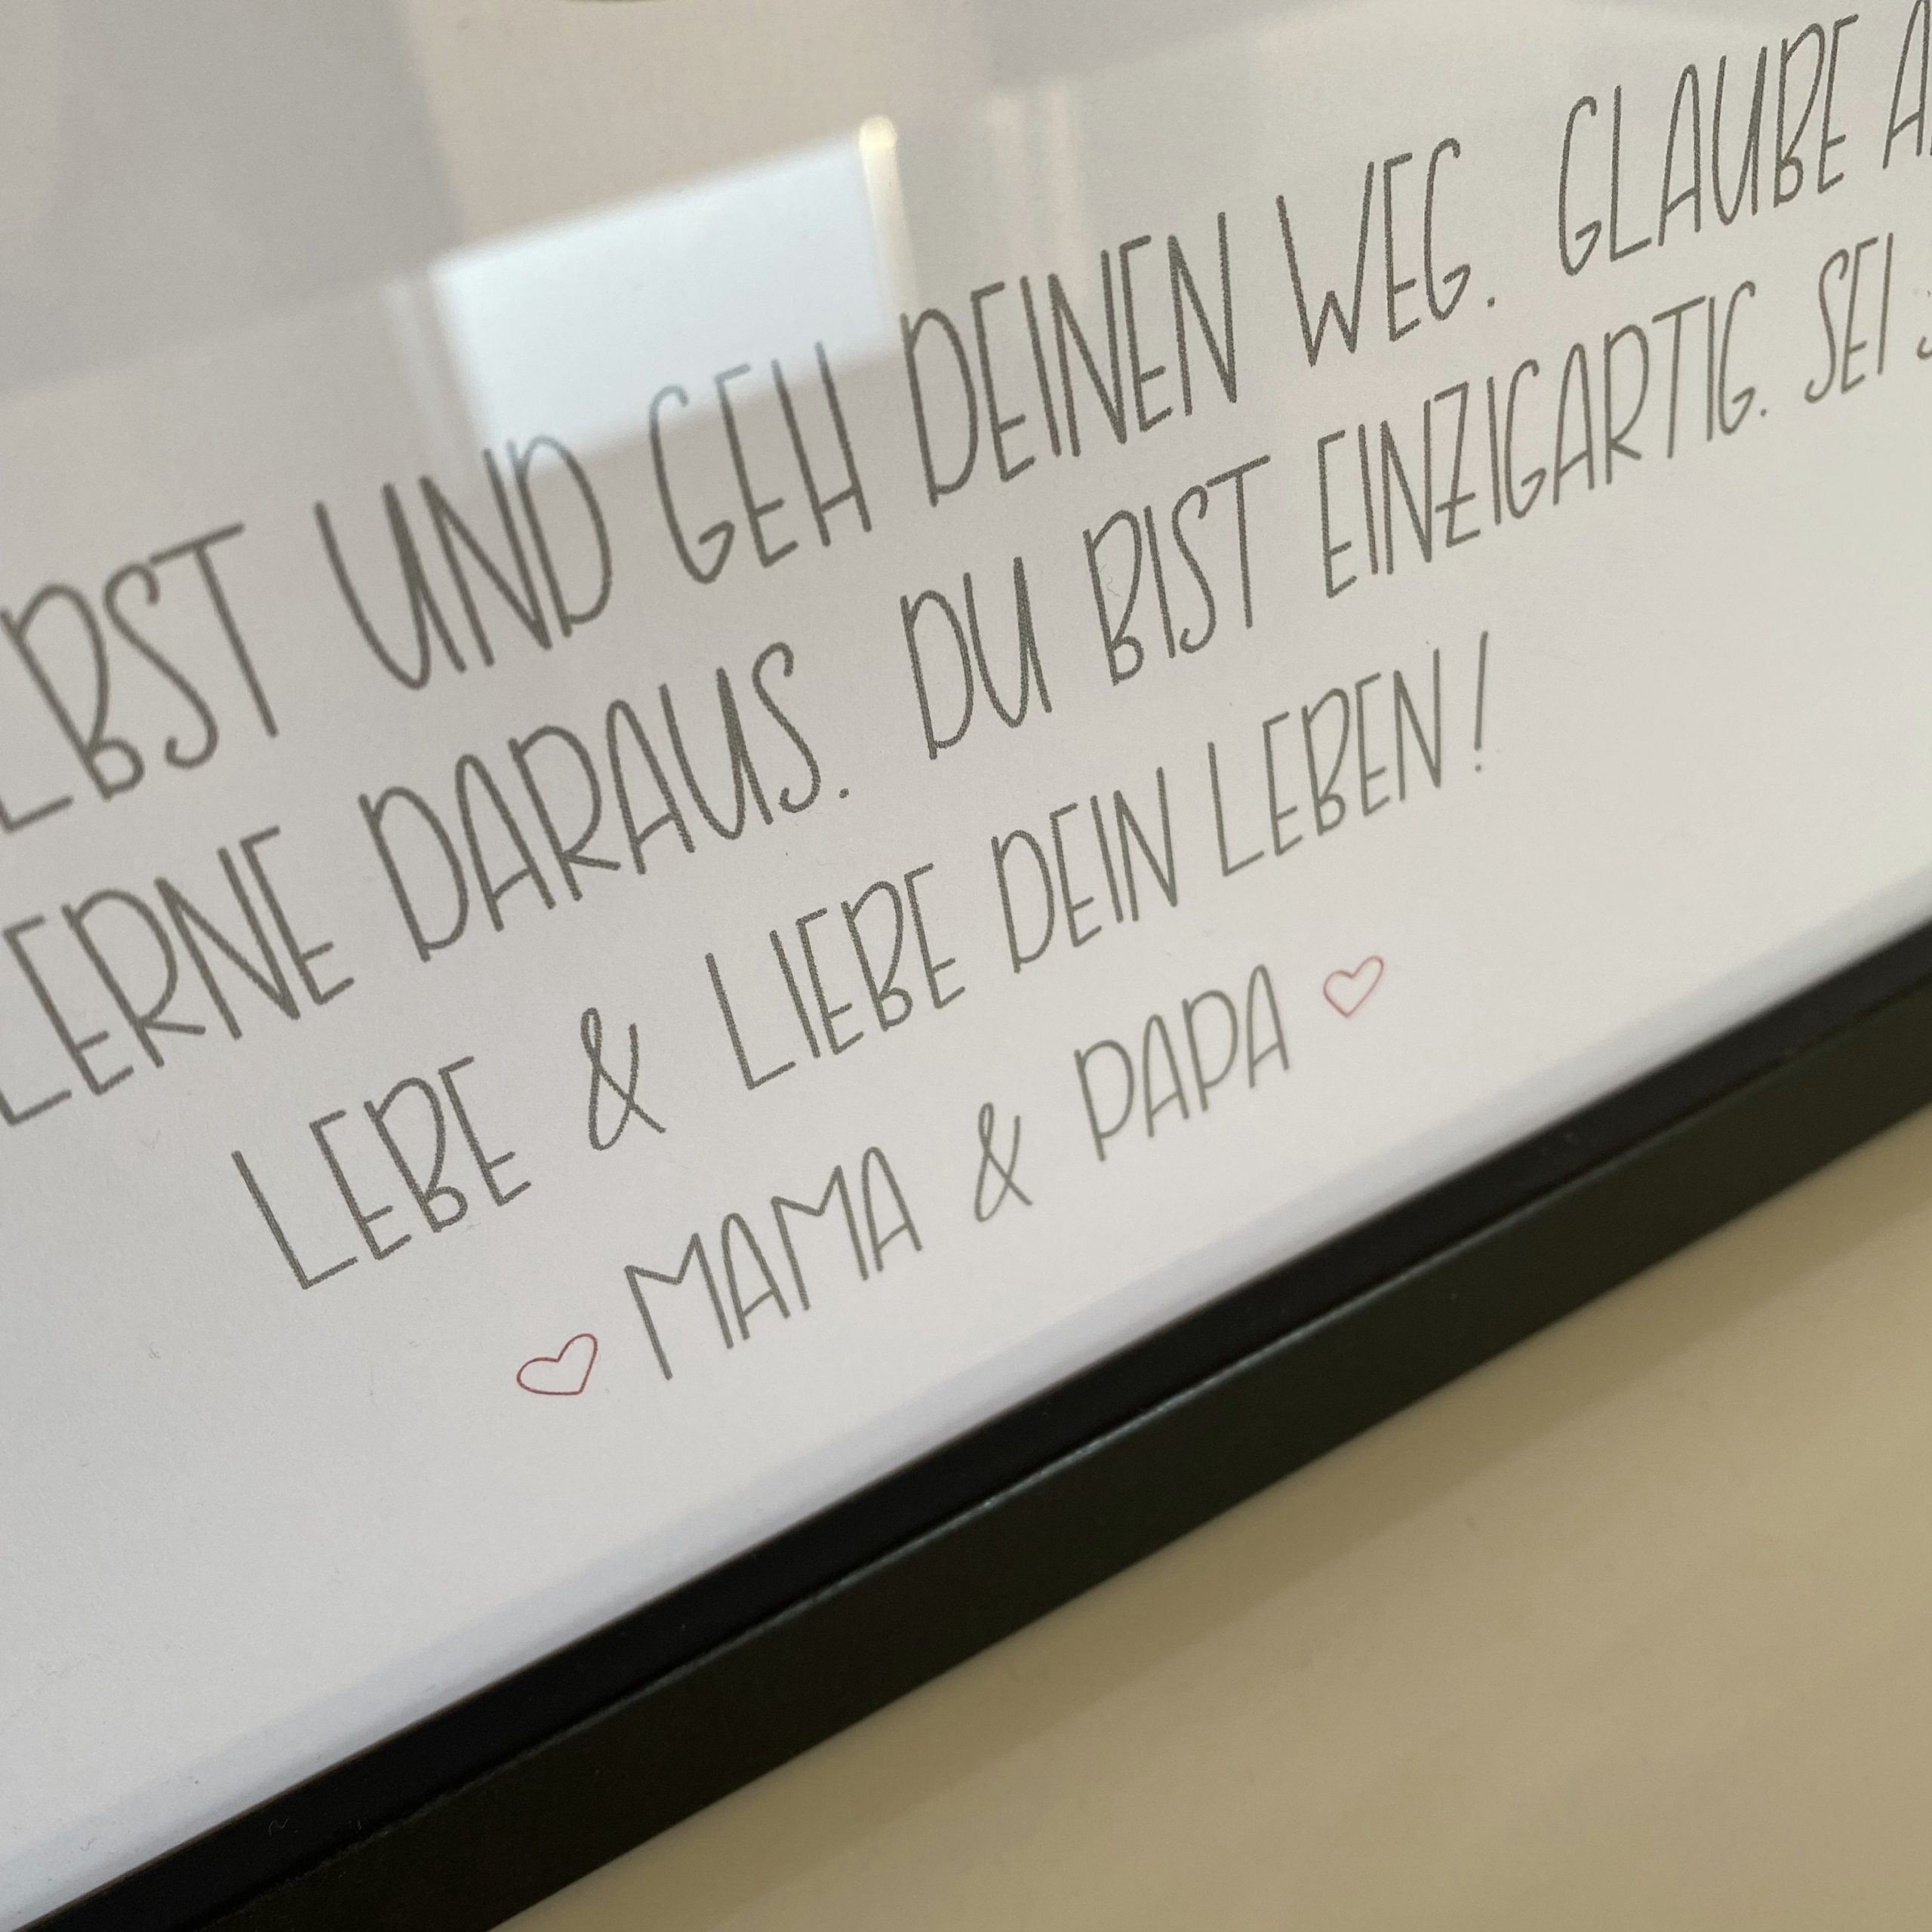 UND GEH DEINEN WEG. GLAUBE
LERNE DARAUS. DU BIST EINZIGARTIG. SEI
LEBE & LIEBE DEIN LEBEN!
MAMA & PAPA